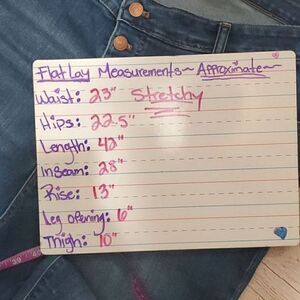 Flat Lay Measurements~ Approximate~
Waist: 23" Stretchy
Hips: 22.5"
Length: 42"
Inseam: 28"
Rise: 13"
Leg opening: 6"
Thigh: 10"